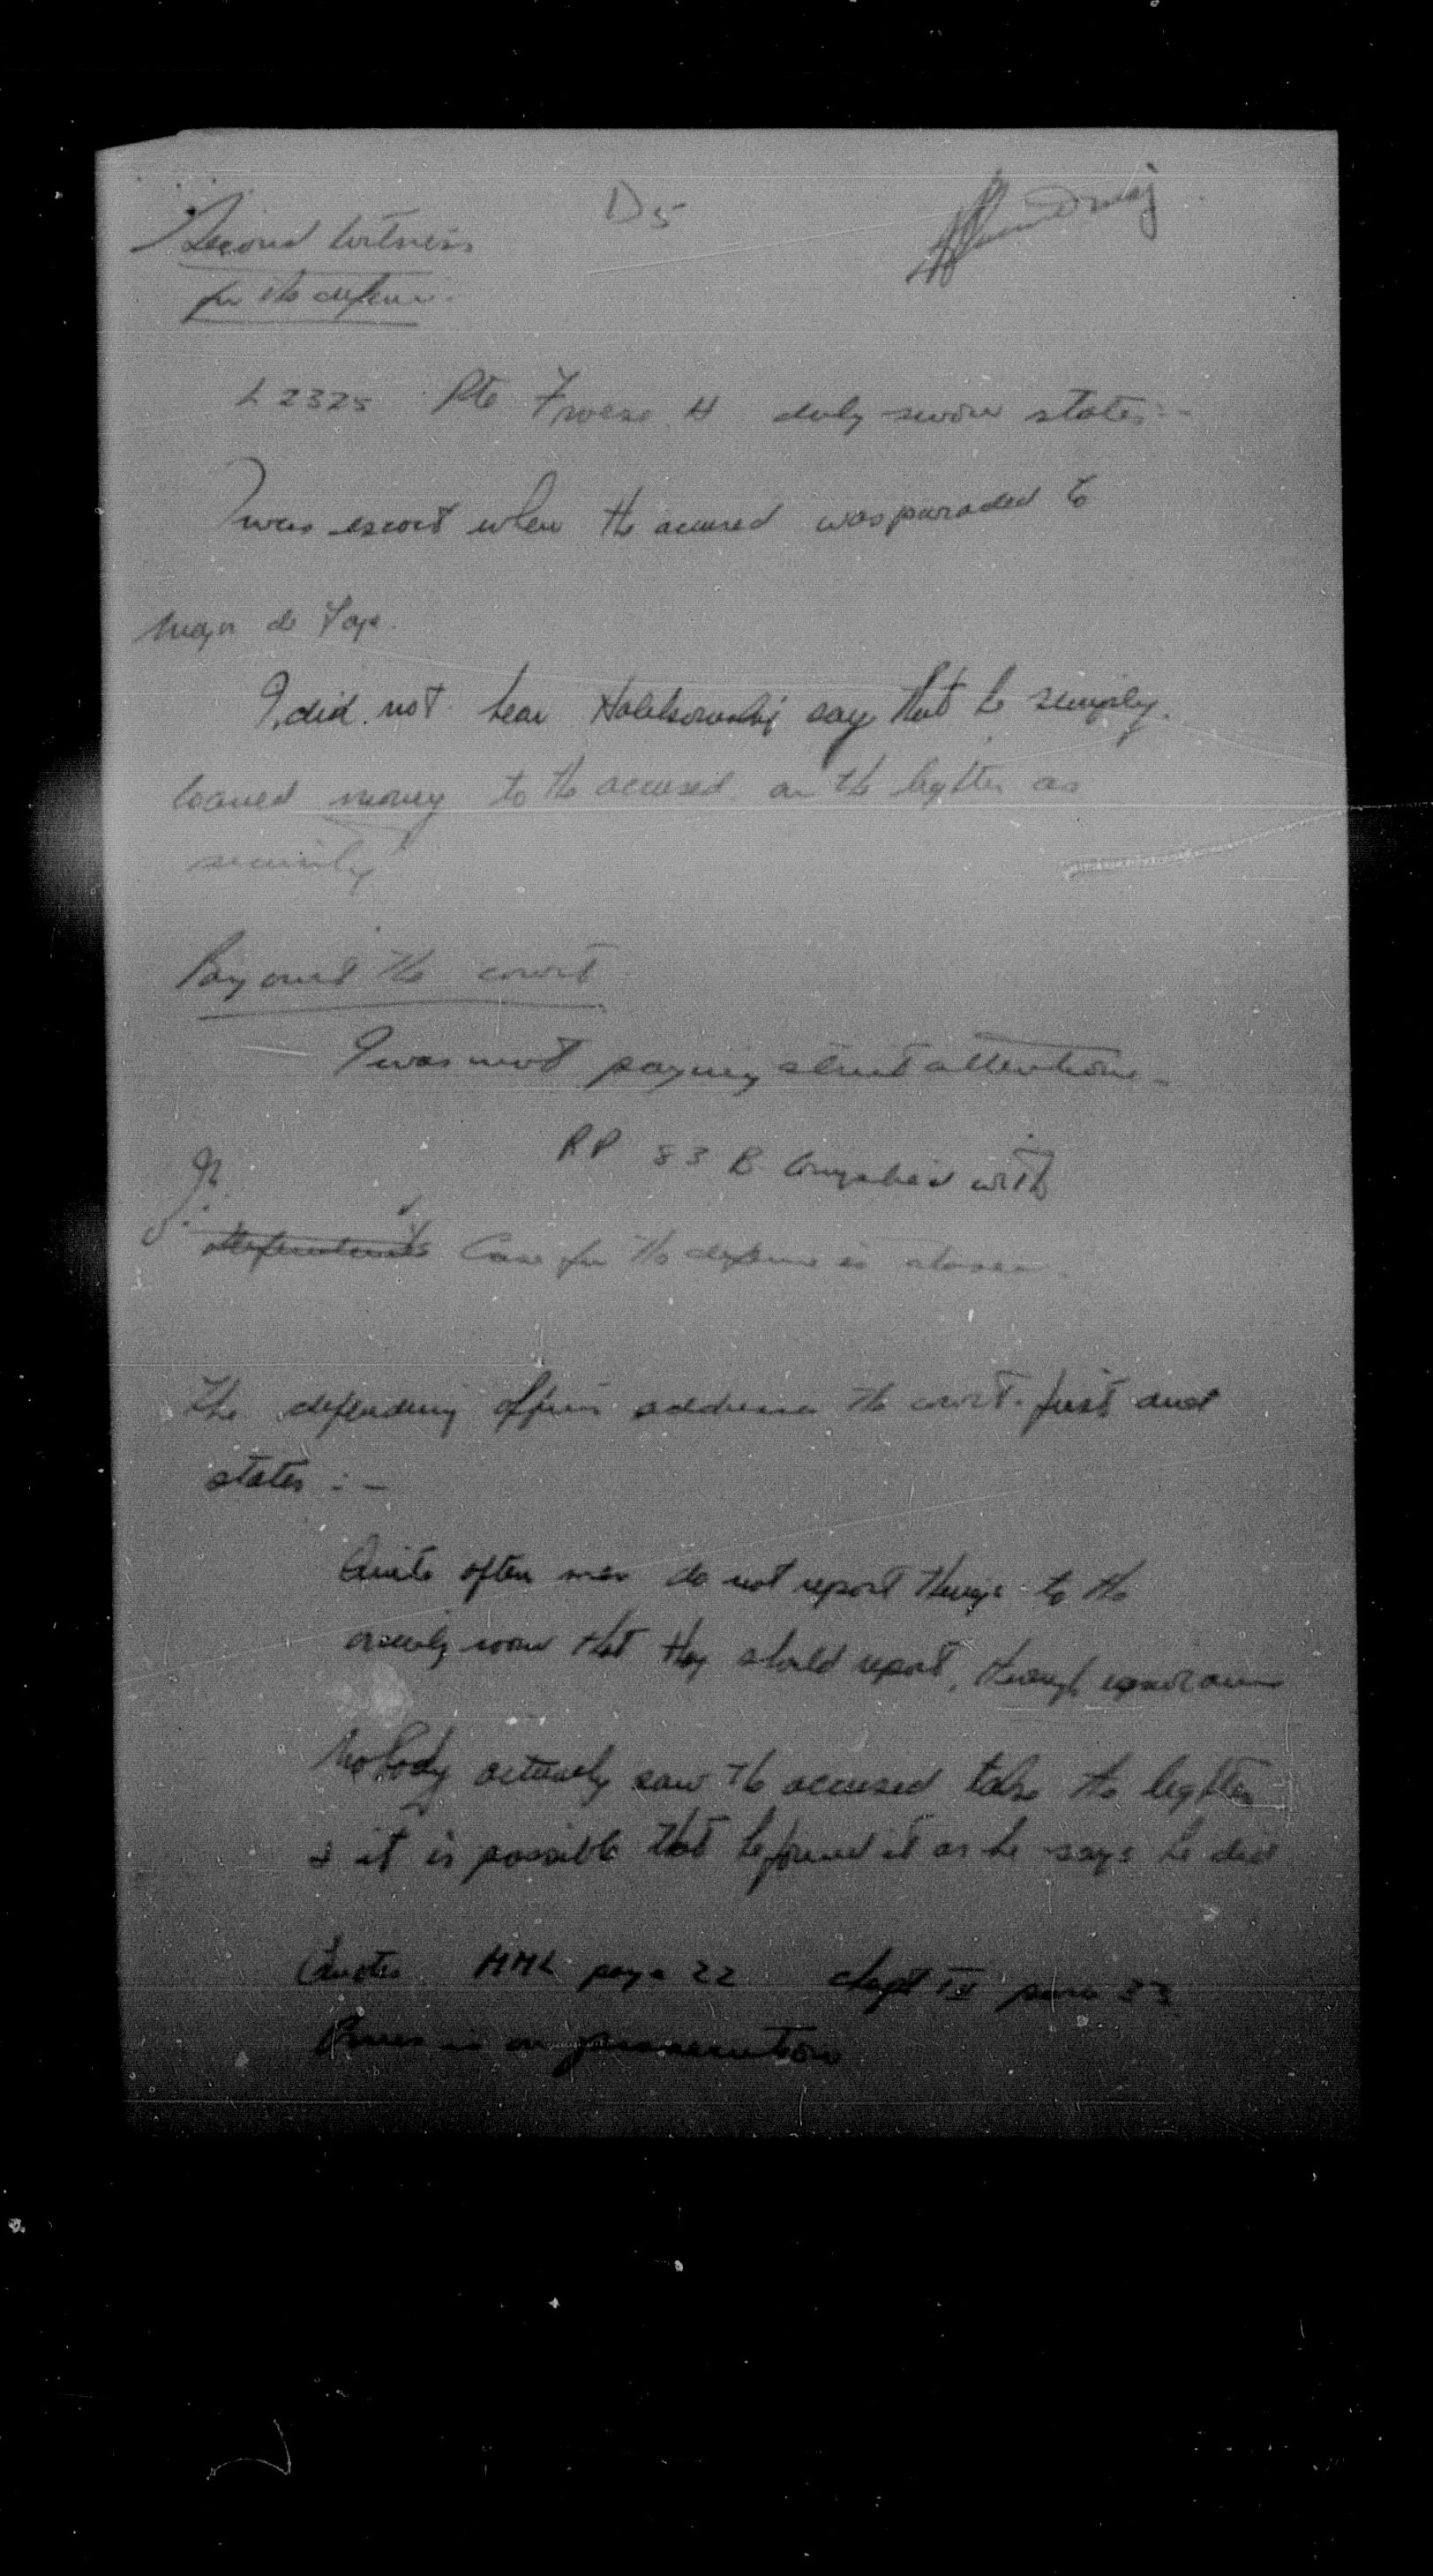 D5
Second Witness
for the defence.
L 2325 Pte Froese H duly sworn states:-
I was escort when the accused was paraded to
Major de Faye.
I did not hear say that he simply
loaned money to the accused on the lighter as
security
By the court
I was not paying strict attention-
RP 83 B complied with
Case for the defence is closed.
The defending officer addresses the court first and
states :-
Quite often men do not report things to the
orderly room that they should report, through ignorance
Nobody actually saw the accused take the lighter
& it is possible that he found it as he says he did
Quotes MML page 22 chapt para 33
on prosecution